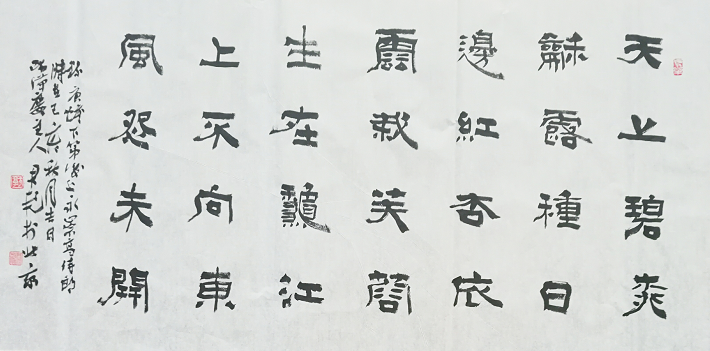 天上碧桃
龢露種日
邊紅杏依
雲栽芙蓉
生在龝江
上不向東
風怨未開
唐蟾下第後上永崇高侍郎
時在秋月吉日
主人書於北京